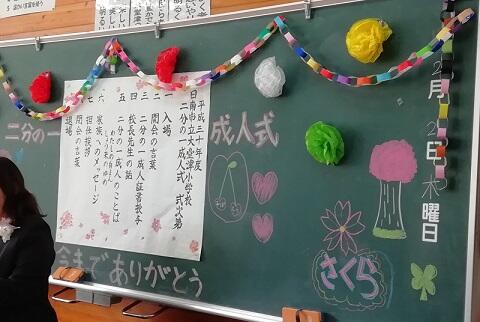 二分の一成人式
平成三十年度
日南市立大堂津小学校
二分の一成人式 式次第
一 入場
二 開会の言葉
三 二分の一成人証書授与
四 校長先生の話
五 二分の一成人のことば
六 家族へのメッセージ
七 担任挨拶
閉会の言葉
退場
今までありがとう
さくら
2月
日
木曜日